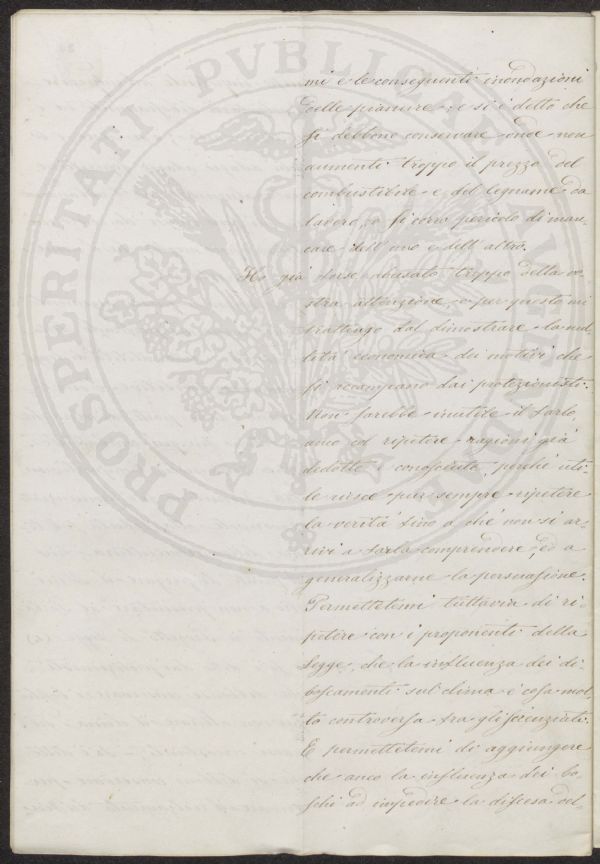 PROSPERITATI PVBLICAE AVGENDAE
mi e le conseguenti inondazioni
delle pianure: e si è detto che
si debbono conservare onde non
aumenti troppo il prezzo del
combustibile e del legname da
lavoro, o si corra pericolo di man-
care dell'uno e dell'altro.
Ho già forse abusato troppo della vo-
stra attenzione, e per questo mi
trattengo dal dimostrare la nul-
lità economica dei motivi che
si accampano dai protezionisti.
Non sarebbe inutile il farlo
anco col ripetere ragioni già
dedotte e conosciute, perché uti-
le riesce pur sempre ripetere
la verità fino a che non si ar-
rivi a farla comprendere, ed a
generalizzarne la persuasione.
Permettetemi tuttavia di ri-
petere con i proponenti della
Legge, che la influenza dei di-
boscamenti sul clima è cosa mol-
to controversa fra gli scienziati.
E permettetemi di aggiungere
che anco la influenza dei bo-
schi ad impedire la discesa del-